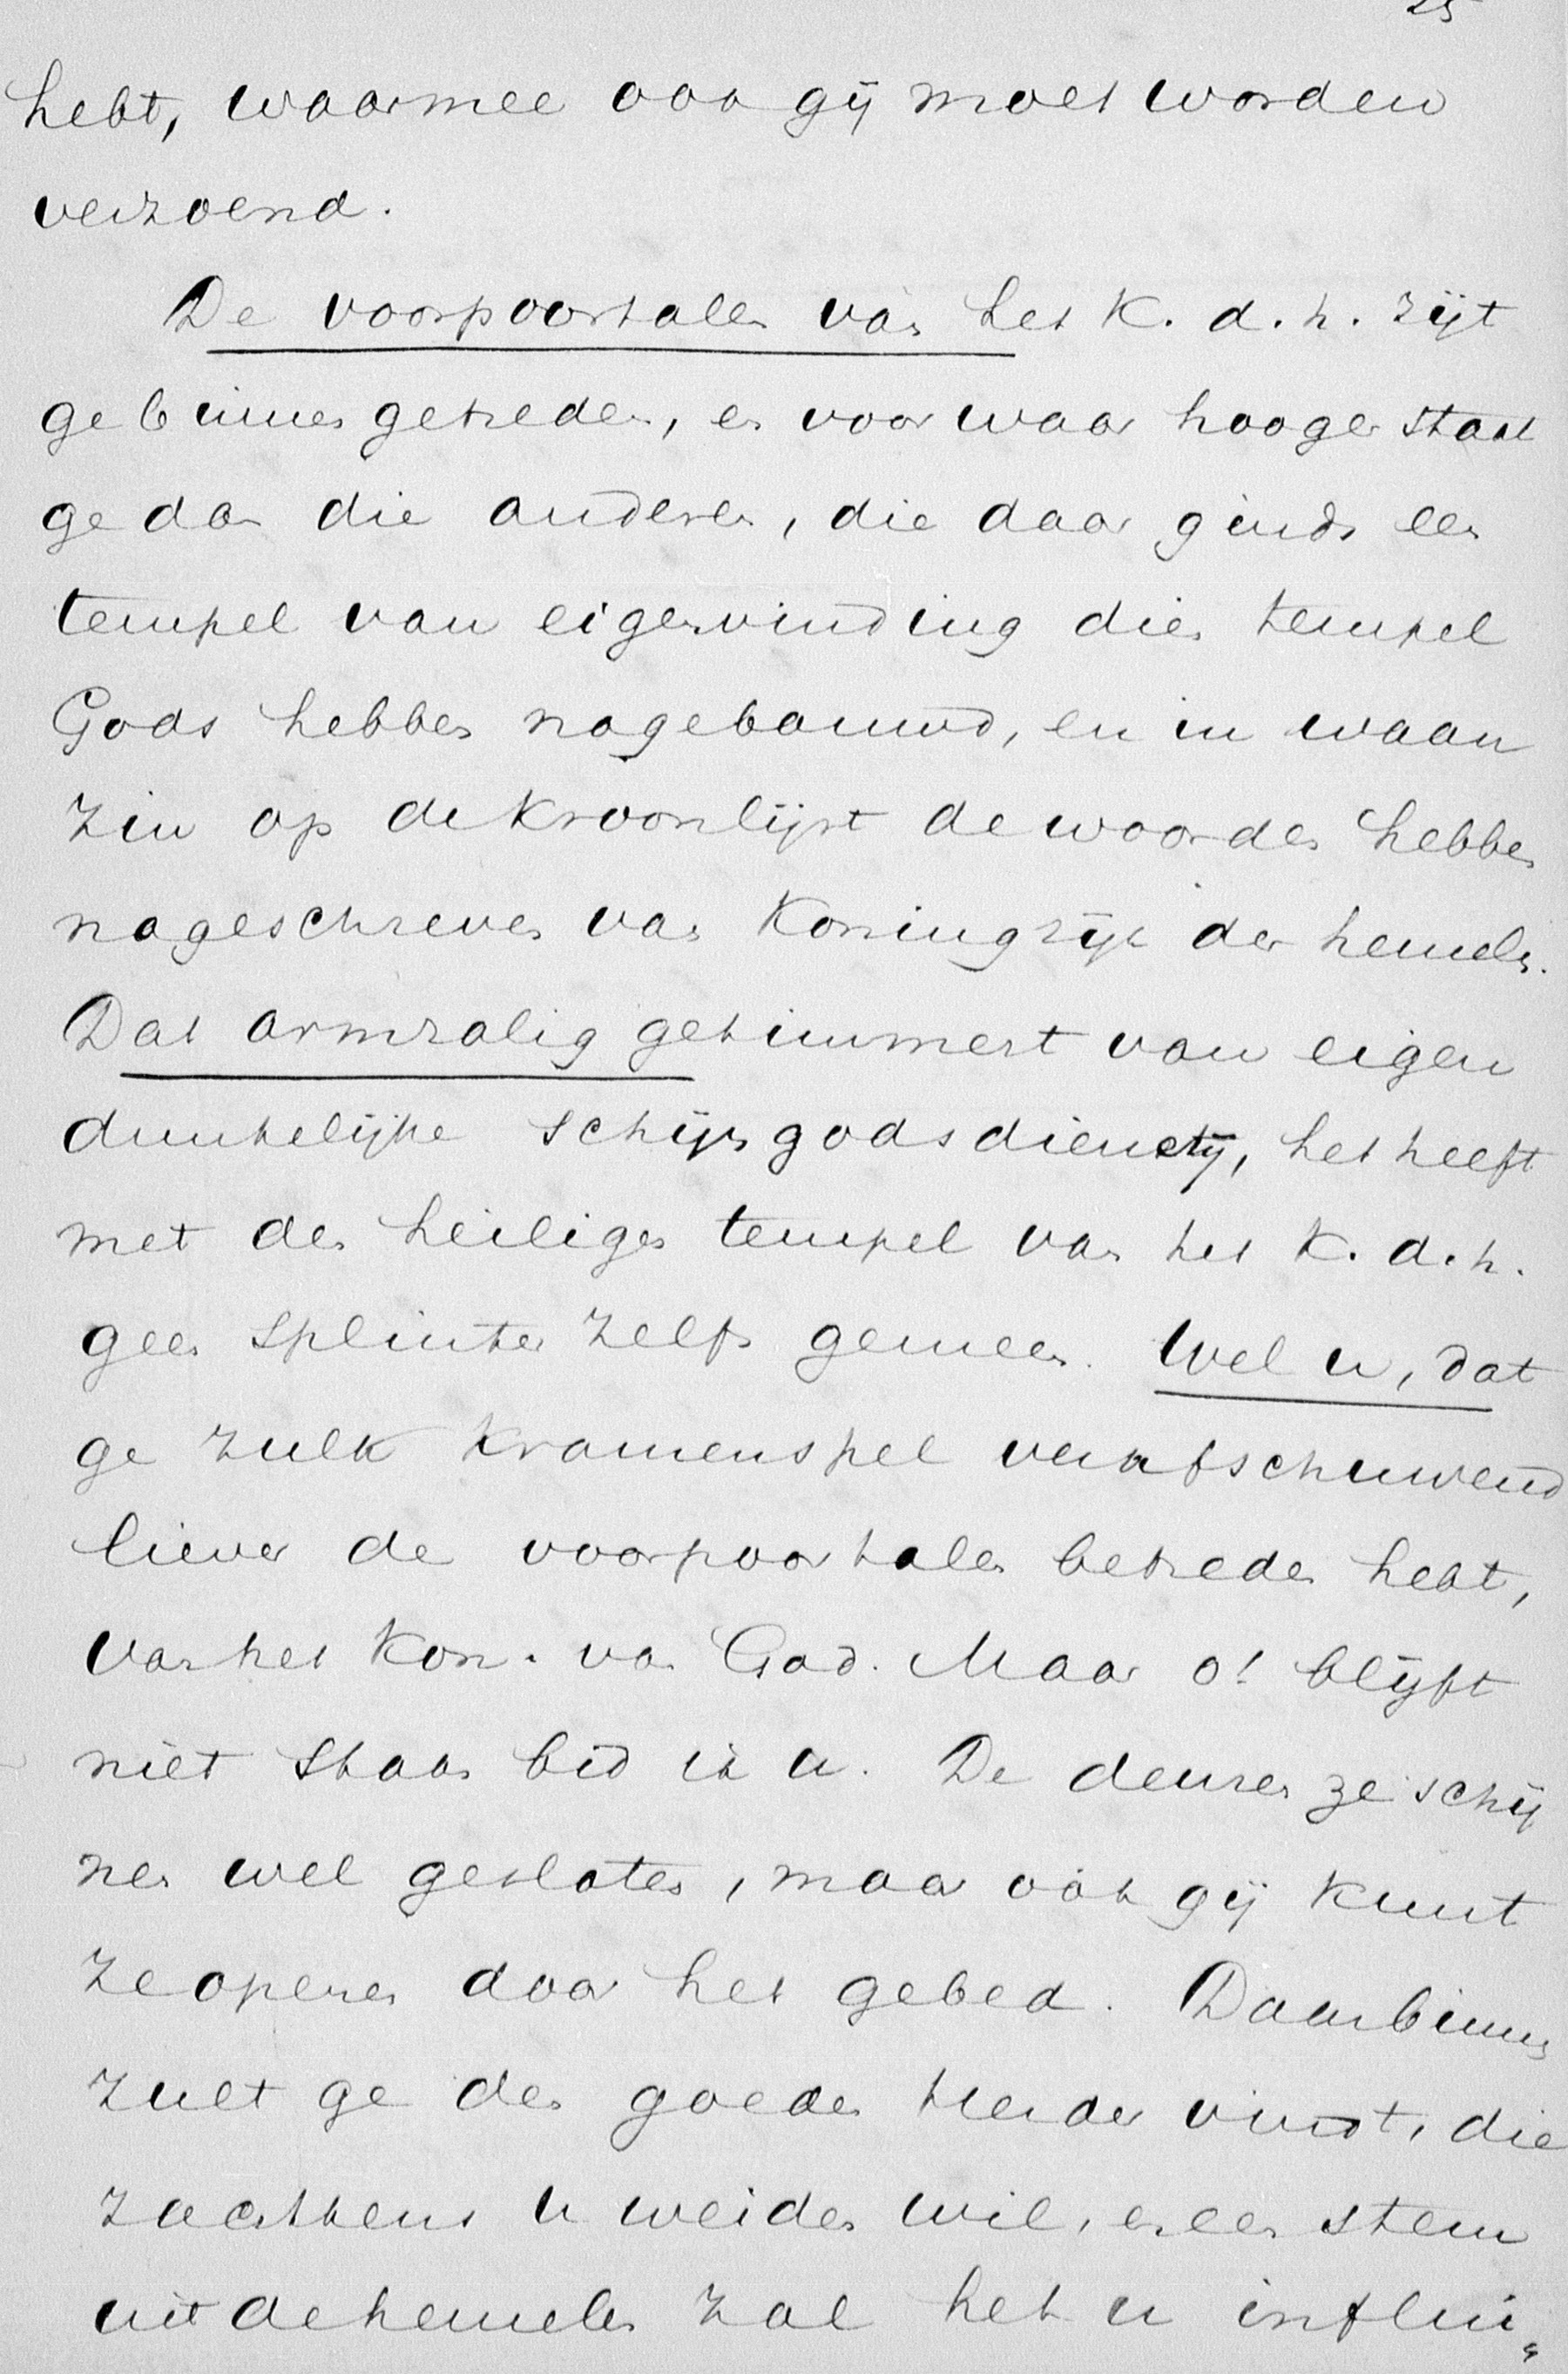 25
hebt, waarmee ook gij moet worden
verzoend.
De voorpoortalen van het K. d. h. zijt
ge binnengetreden, en voorwaar hooger staat
ge dan die anderen, die daar ginds een
tempel van eigenvinding dien tempel
Gods hebben nagebouwd, en in waan
zin op de kroonlijst de woorden hebben
nageschreven van Koningrijk der hemelen.
Dat armzalig getimmert van eigen
dunkelijke schijngodsdienstij, het heeft
met den heiligen tempel van het K. d. h.
geen splinter zelfs gemeen. Wel u, dat
ge zulk kramenspel verafschuwend
liever de voorpoortalen betreden hebt,
van het Kon. van God. Maar o! blijft
niet staan bid ik u. De deuren ze schij
nen wel gesloten, maar oók gij kunt
ze openen door het gebed. Daarbinnen
zult ge den goeden Herder vindt, die
zachtkens u weiden wil, en een stem
uit de hemelen zal het u influi„